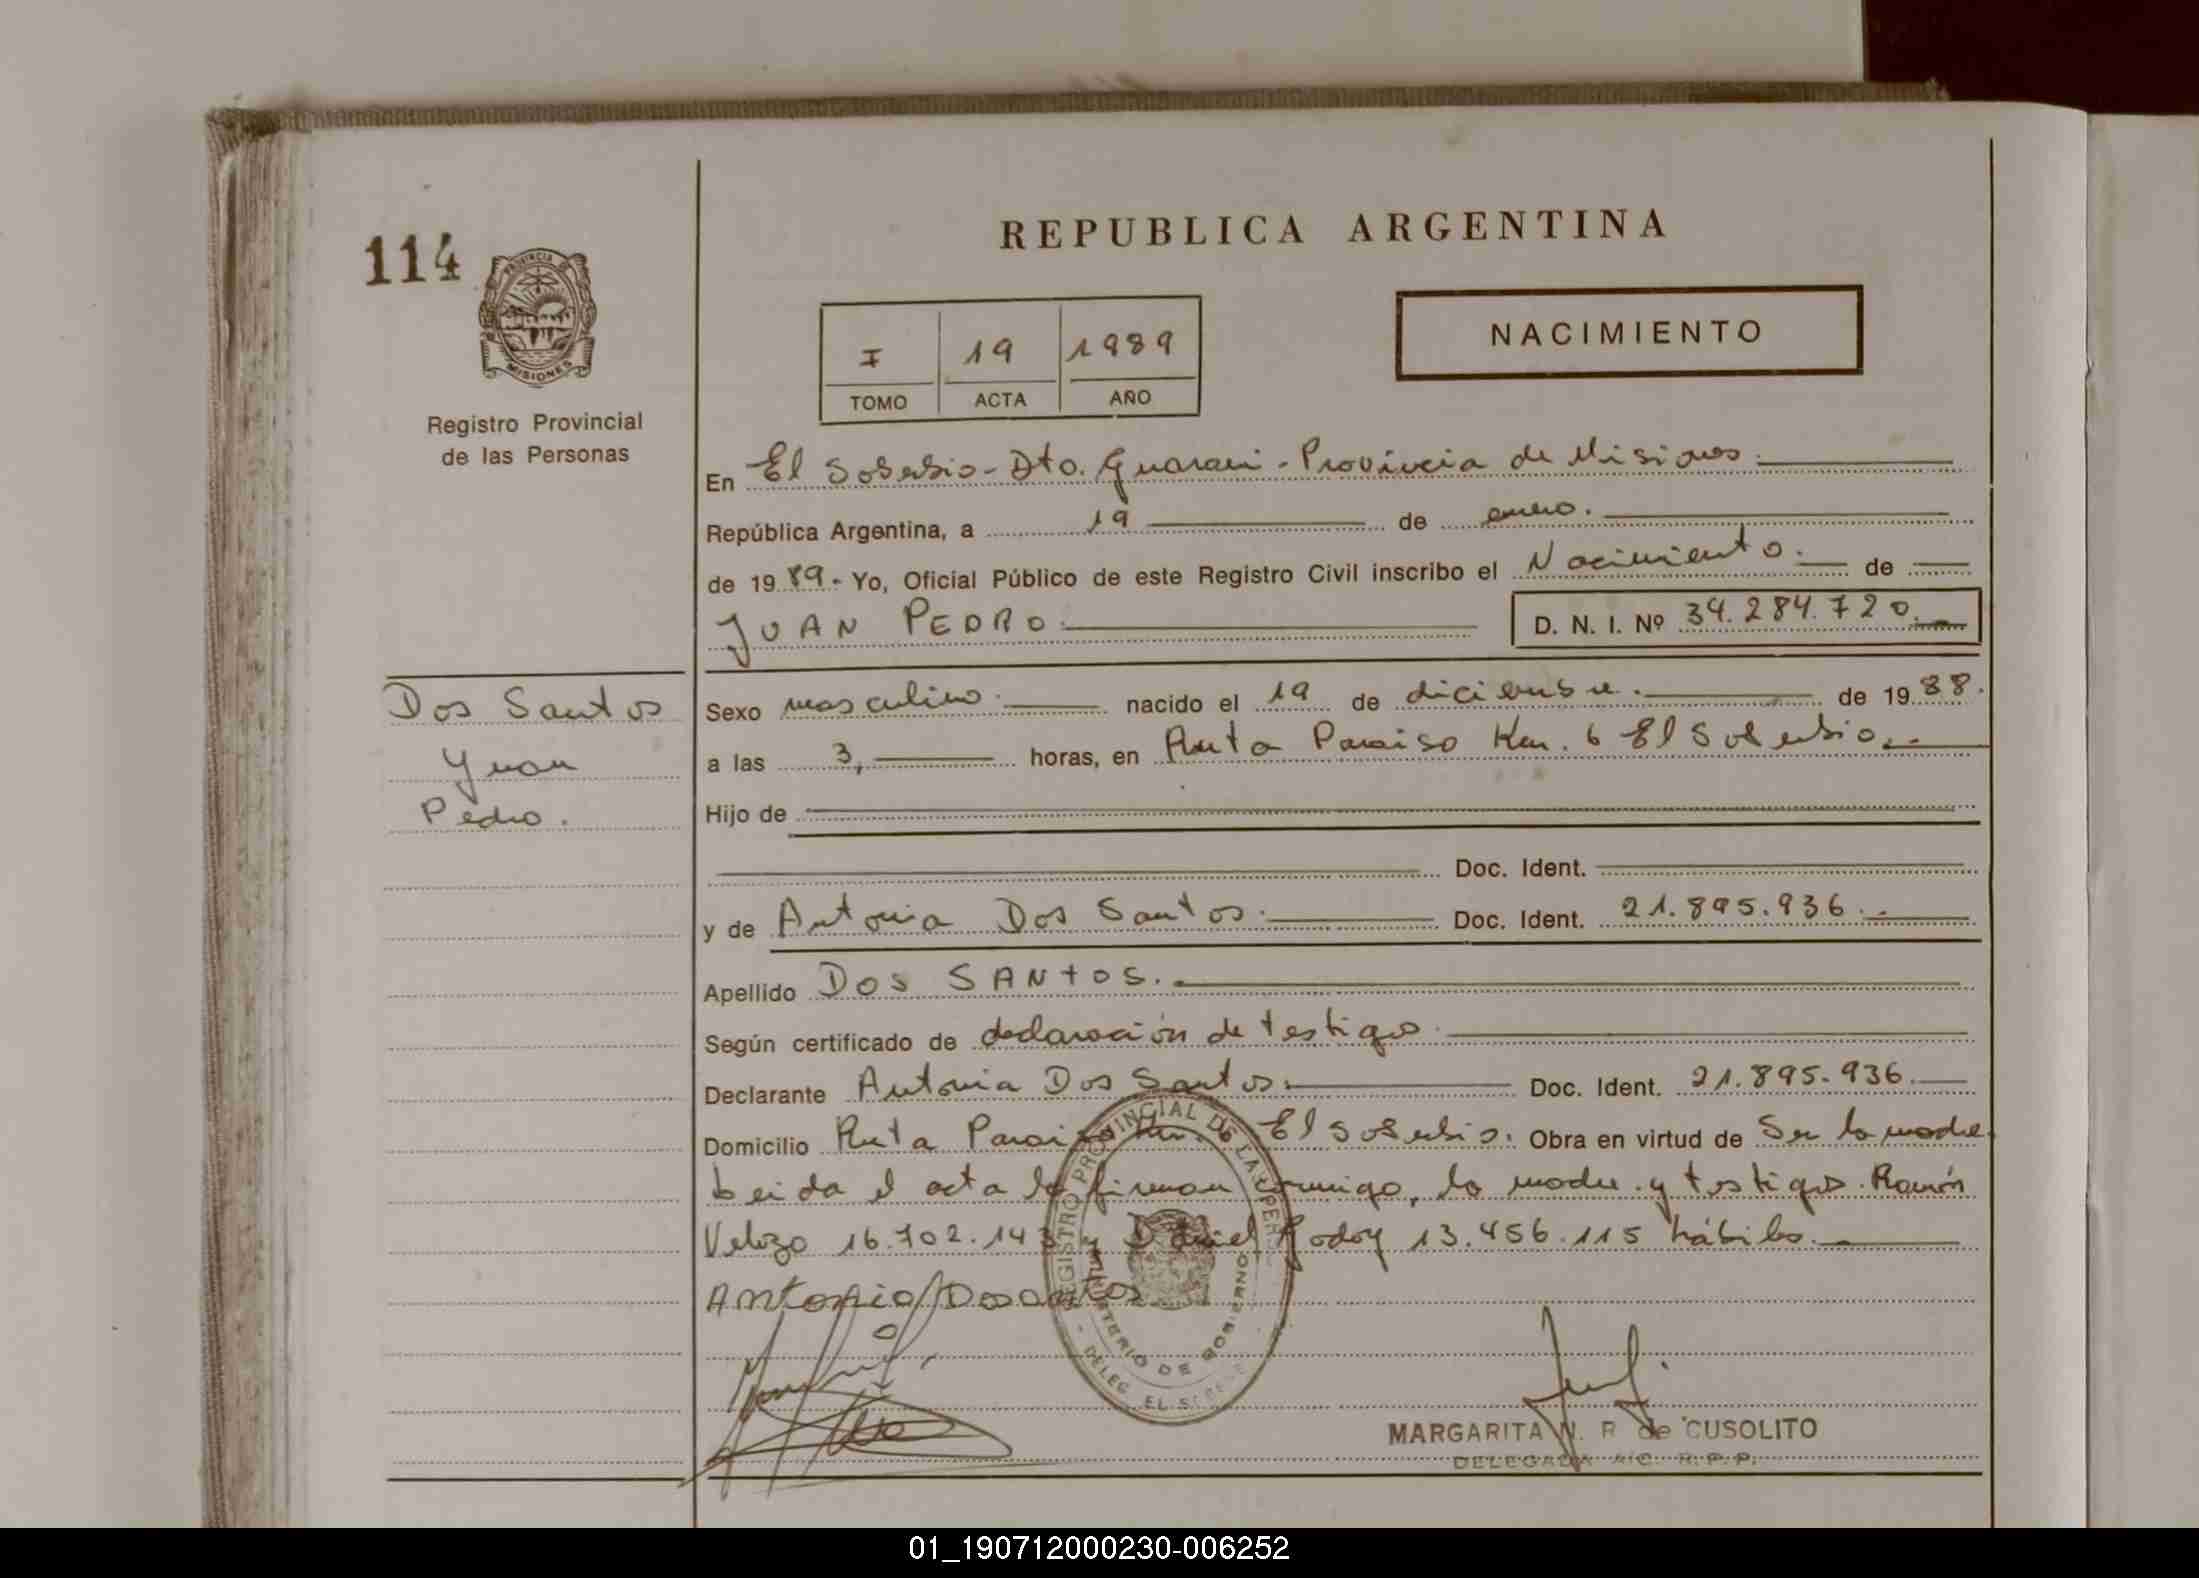 REPUBLICA ARGENTINA
114
PROVINCIA DE
MISIONES
Registro Provincial
de las Personas
I 19 1989
TOMO ACTA AÑO
NACIMIENTO
En El Soberbio - Dto. Guarani - Provincia de Misiones.
República Argentina, a 19 de enero.
de 1989.- Yo, Oficial Público de este Registro Civil inscribo el Nacimiento. de
JUAN PEDRO. D. N. I. Nº 34.284.720.
Dos Santos
Juan
Pedro.
Sexo masculino. nacido el 19 de diciembre. de 1988.
a las 3, horas, en Ruta Paraiso Km. 6 El Soberbio.-
Hijo de
Doc. Ident.
y de Antonia Dos Santos. Doc. Ident. 21.895.936.-
Apellido DOS SANTOS.
Según certificado de declaración de testigos.
Declarante Antonia Dos Santos. Doc. Ident. 21.895.936.
Domicilio Ruta Paraiso Km. 6 El Soberbio. Obra en virtud de Ser la madre.
Leida el acta la firman conmigo, la madre y testigos Ramón
Velozo 16.702.143 y Daniel Godoy 13.456.115 hábiles.
Antonia Dosantos
REGISTRO PROVINCIAL DE LAS PERS
MINISTERIO DE GOBIERNO
DELEG. EL SOBERB
MARGARITA N. R. de CUSOLITO
DELEGADA A/C. R.P.P.
01_190712000230-006252